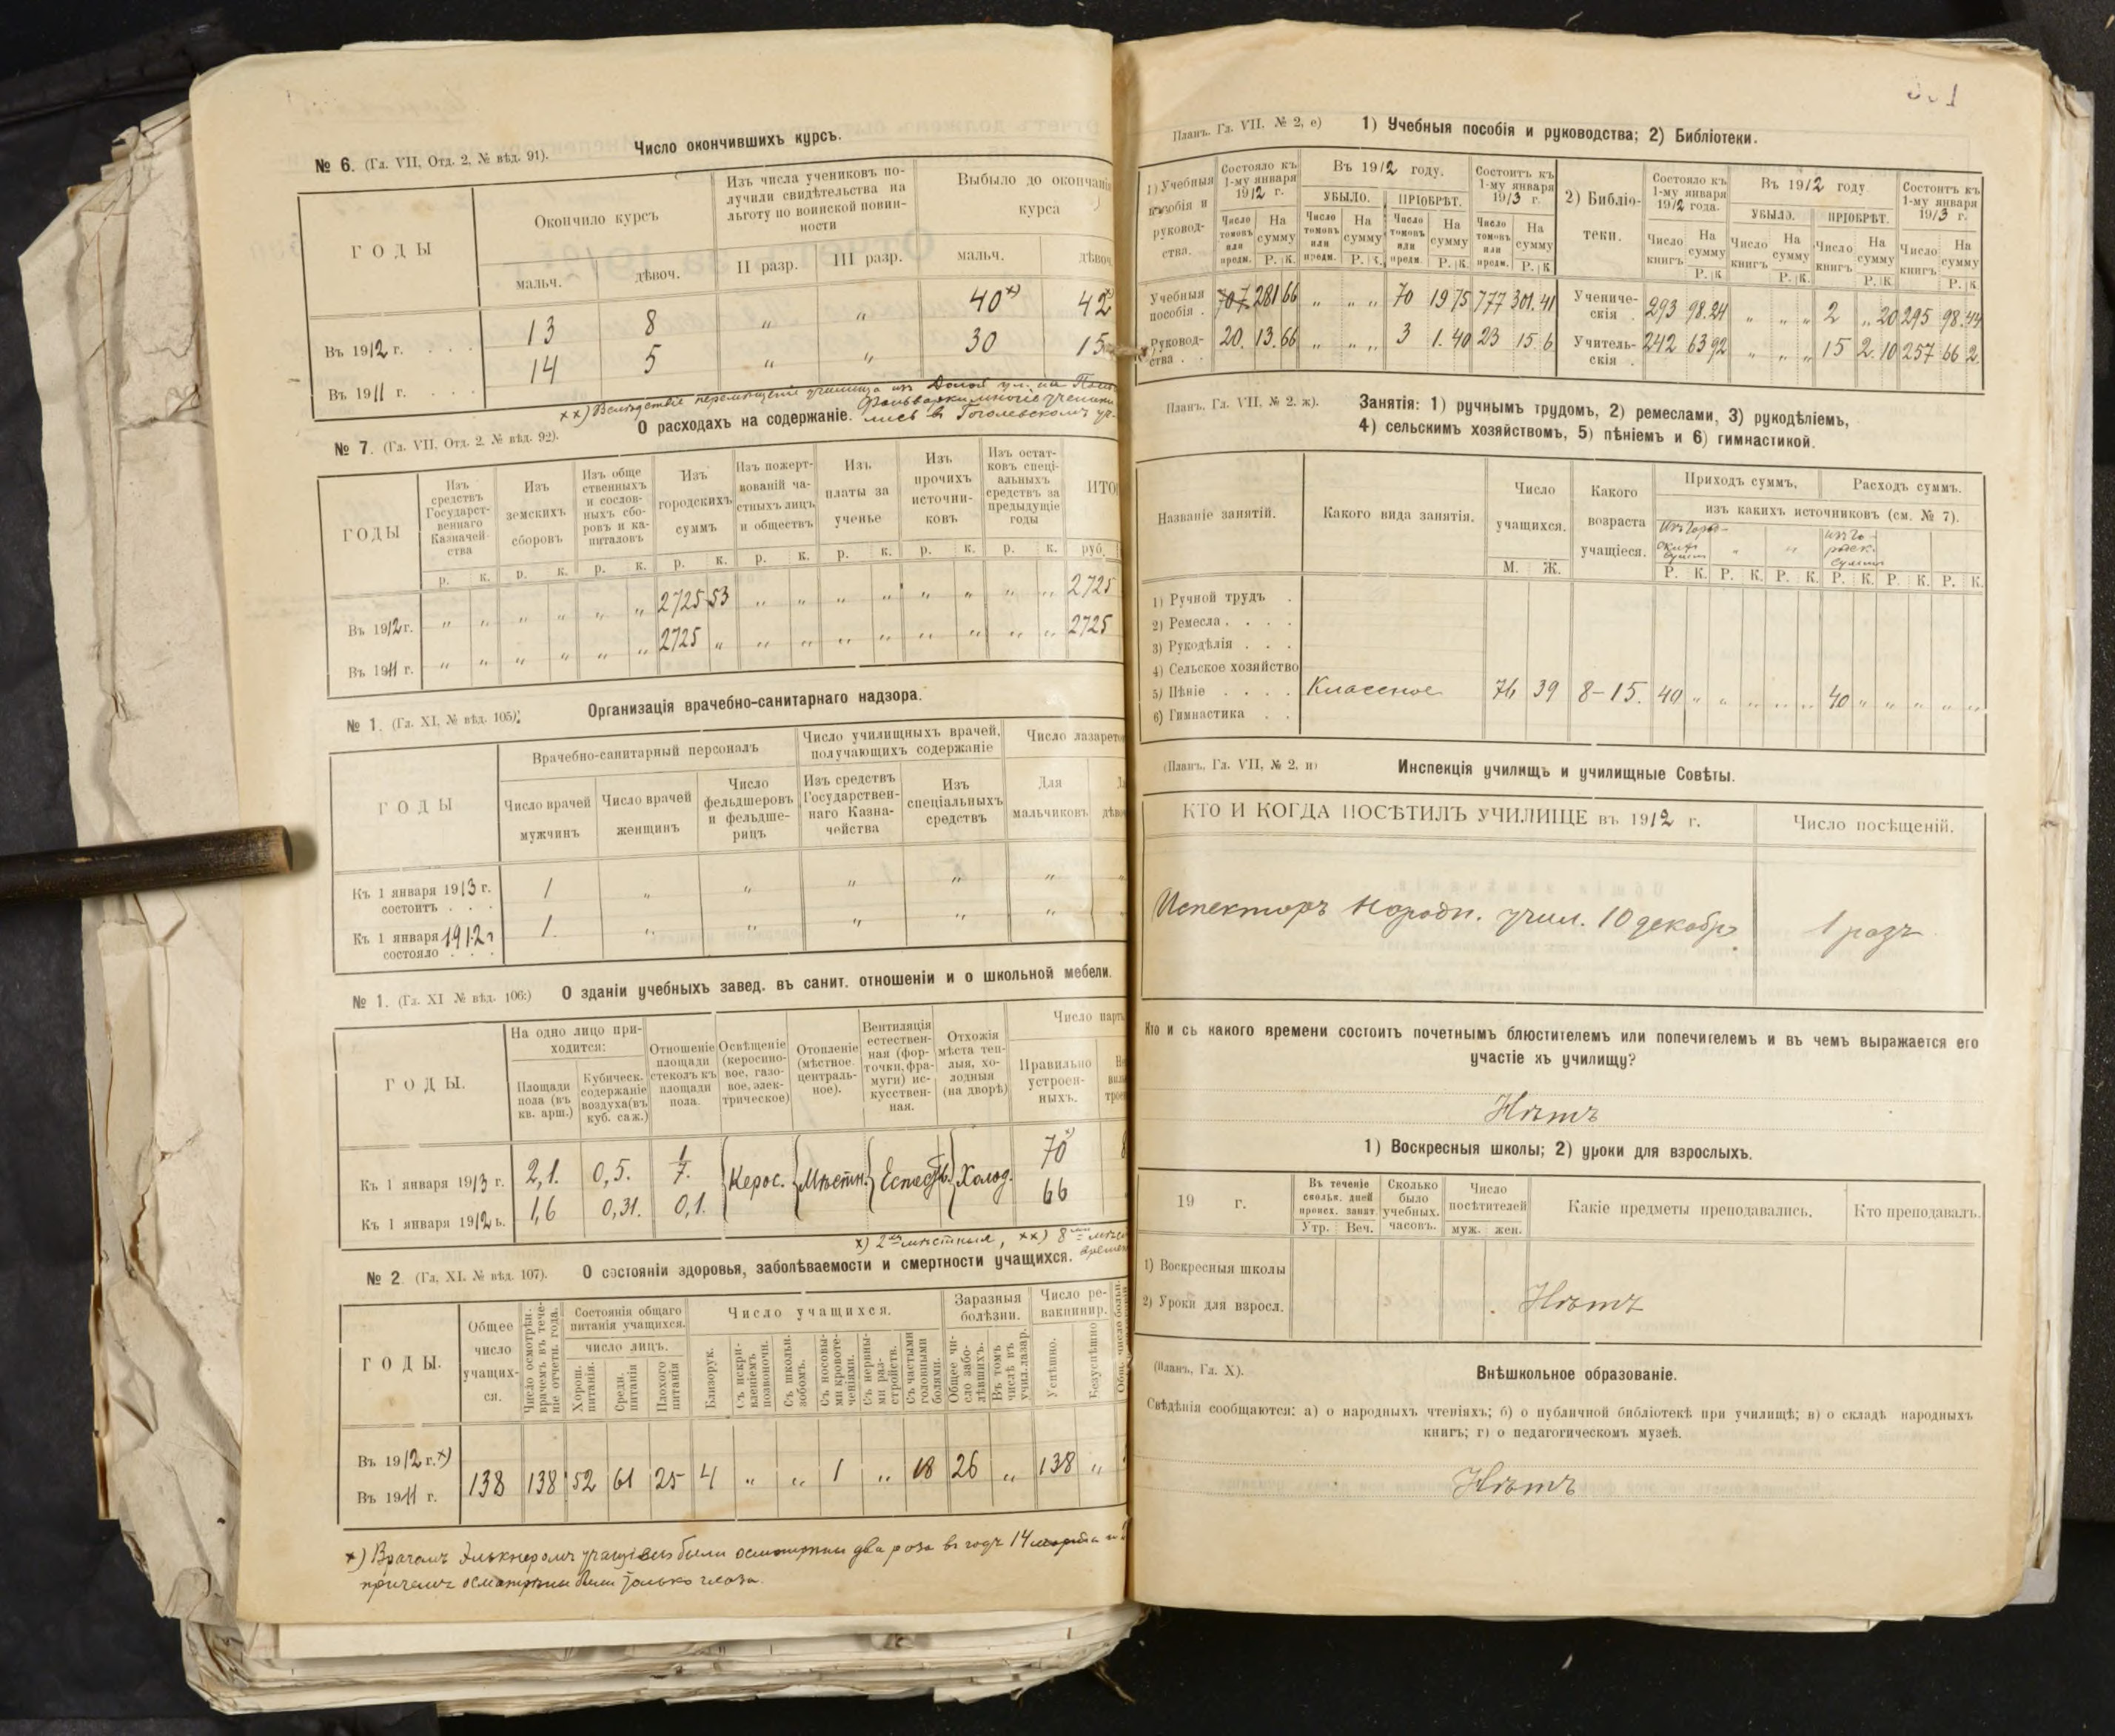 № 6. (Гл. VII, Отд. 2, № вѣд. 91).
Число окончившихъ курсъ.
ГОДЫ
Окончило курсъ
мальч.
дѣвоч.
Изъ числа учениковъ по-
лучили свидѣтельства на
льготу по воинской повин-
ности
II разр.
III разр.
Выбыло до окончанія
курса
мальч.
дѣвоч
Въ 1912 г. 13 8 „ „ 40 х) 42 х)
Въ 1911 г. 14 5 „ „ 30 15
хх) Вслѣдствіе перемѣщенія училища изъ
многіе ученики
въ Гоголевскомъ уч-
№ 7. (Гл. VII, Отд. 2, № вѣд. 92).
О расходахъ на содержаніе.
ГОДЫ
Изъ
средствъ
Государст-
веннаго
Казначей-
ства
Изъ
земскихъ
сборовъ
Изъ обще
ственныхъ
и сослов-
ныхъ сбо-
ровъ и ка-
питаловъ
Изъ
городскихъ
суммъ
Изъ пожерт-
вованій ча-
стныхъ лицъ
и обществъ
Изъ
платы за
ученье
Изъ
прочихъ
источни-
ковъ
Изъ остат-
ковъ спеці-
альныхъ
средствъ за
предыдущіе
годы
ИТО
р. к. р. к. р. к. р. к. р. к. р. к. р. к. р. к. руб.
Въ 1912 г. „ „ „ „ „ „ 2725 53 „ „ „ „ „ „ „ „ 2725
Въ 1911 г. „ „ „ „ „ „ 2725 „ „ „ „ „ „ „ „ „ 2725
№ 1. (Гл. XI, № вѣд. 105).
Организація врачебно-санитарнаго надзора.
ГОДЫ
Врачебно-санитарный персоналъ
Число врачей
мужчинъ
Число врачей
женщинъ
Число
фельдшеровъ
и фельдше-
рицъ
Число училищныхъ врачей,
получающихъ содержаніе
Изъ средствъ
Государствен-
наго Казна-
чейства
Изъ
спеціальныхъ
средствъ
Число лазарето
Для
мальчиковъ
Къ 1 января 1913 г.
состоитъ . . . 1 „ „ „ „ „
Къ 1 января 1912 г
состояло . . . 1. „ „ „ „ „
№ 1. (Гл. XI № вѣд. 106:)
О зданіи учебныхъ завед. въ санит. отношеніи и о школьной мебели.
ГОДЫ.
На одно лицо при-
ходится:
Площади
пола (въ
кв. арш.)
Кубическ.
содержаніе
воздуха (въ
куб. саж.)
Отношеніе
площади
стеколъ къ
площади
пола.
Освѣщеніе
(керосино-
вое, газо-
вое, элек-
трическое)
Отопленіе
(мѣстное
централь-
ное).
Вентиляція
естествен-
ная (фор-
точки, фра-
муги) ис-
кусствен-
ная.
Отхожія
мѣста теп-
лыя, хо-
лодныя
(на дворѣ)
Число партъ
Правильно
устроен-
ныхъ.
Къ 1 января 1913 г. 2,1. 0,5. 1/7. Керос. Мѣстн. Естеств. Холод. 70 х)
Къ 1 января 1912 г. 1,6 0,31. 0,1. 66
х) 2хъ мѣстныя, хх) 8ми
№ 2. (Гл. XI. № вѣд. 107).
О состояніи здоровья, заболѣваемости и смертности учащихся.
ГОДЫ.
Общее
число
учащих-
ся.
Число осмотрѣн.
врачемъ въ тече-
ніе отчетн. года.
Состоянія общаго
питанія учащихся.
число лицъ.
Хорош.
питанія.
Средн.
питанія
Плохого
питанія
Число учащихся.
Близорук.
Съ искри-
вленіемъ
позвоночн.
Съ школьн.
зобомъ.
Съ носовы-
ми кровоте-
ченіями.
Съ нервны-
ми раз-
стройств.
Съ частыми
головными
болями.
Заразныя
болѣзни.
Общее чи-
сло забо-
лѣвшихъ.
Въ томъ
числѣ въ
учил. лазар.
Число ре-
вакцинир.
Успѣшно.
Безуспѣшно
Въ 1912 г. х)
Въ 1911 г. 138 138 52 61 25 4 „ „ 1 „ 18 26 „ 138 „
х) Врачемъ Элькнеромъ учащіеся были осмотрѣны два раза въ годъ 14 марта и
причемъ осмотрѣны были только глаза.
Планъ. Гл. VII. № 2, е)
1) Учебныя пособія и руководства; 2) Библіотеки.
1) Учебныя
пособія и
руковод-
ства.
Состояло къ
1-му января
1912 г.
Въ 1912 году.
УБЫЛО.
ПРІОБРѢТ.
Состоитъ къ
1-му января
1913 г.
Число
томовъ
или
предм.
На
сумму
Р. К.
2) Библіо-
теки.
Состояло къ
1-му января
1912 года.
Въ 1912 году
УБЫЛО.
ПРІОБРѢТ.
Состоитъ къ
1-му января
1913 г.
Число
книгъ
На
сумму
Р. К.
Учебныя
пособія . 707 281 66 „ „ „ 70 19 75 777 301. 41
Учениче-
скія . 293 98. 24 „ „ „ 2 „ 20 295 98. 44
Руковод-
ства . . 20. 13. 66 „ „ „ 3 1. 40 23 15 6
Учитель-
скія . 242 63 92 „ „ „ 15 2. 10 257 66 2.
Планъ. Гл. VII. № 2. ж).
Занятія: 1) ручнымъ трудомъ, 2) ремеслами, 3) рукодѣліемъ,
4) сельскимъ хозяйствомъ, 5) пѣніемъ и 6) гимнастикой.
Названіе занятій.
Какого вида занятія.
Число
учащихся.
М. Ж.
Какого
возраста
учащіеся.
Приходъ суммъ,
Расходъ суммъ.
изъ какихъ источниковъ (см. № 7).
Изъ город-
скихъ
суммъ
„ „
изъ го-
родск.
суммъ
Р. К. Р. К. Р. К. Р. К. Р. К. Р. К.
1) Ручной трудъ .
2) Ремесла . . . .
3) Рукодѣлія . . .
4) Сельское хозяйство
5) Пѣніе . . . . Классное 76 39 8–15. 40 „ „ „ „ „ 40 „ „ „ „ „
6) Гимнастика . .
(Планъ, Гл. VII, № 2, и)
Инспекція училищъ и училищные Совѣты.
КТО И КОГДА ПОСѢТИЛЪ УЧИЛИЩЕ въ 1912 г.
Число посѣщеній.
Испекторъ народн. учил. 10 декабр. 1 разъ
Кто и съ какого времени состоитъ почетнымъ блюстителемъ или попечителемъ и въ чемъ выражается его
участіе къ училищу?
Нѣтъ
1) Воскресныя школы; 2) уроки для взрослыхъ.
19 г.
Въ теченіе
скольк. дней
происх. занят.
Утр. Веч.
Сколько
было
учебных.
часовъ.
Число
посѣтителей
муж. жен.
Какіе предметы преподавались.
Кто преподавалъ.
1) Воскресныя школы
2) Уроки для взросл.
Нѣтъ
(Планъ, Гл. X).
Внѣшкольное образованіе.
Свѣдѣнія сообщаются: а) о народныхъ чтеніяхъ; б) о публичной библіотекѣ при училищѣ; в) о складѣ народныхъ
книгъ; г) о педагогическомъ музеѣ.
Нѣтъ